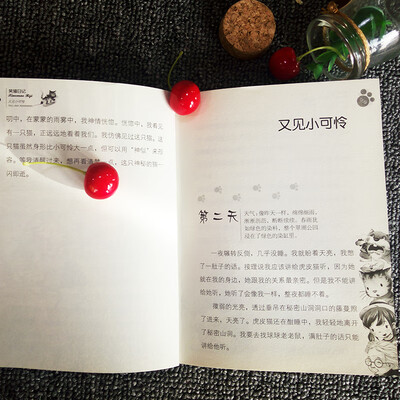 笑猫日记
切中，在蒙蒙的雨雾中，我神情恍惚。恍惚中，我看见
有一只猫，正远远地看着我们。我仿佛见过这只猫。这
只猫虽然身形比小可怜大一点，但可以用“神似”来形
闪即逝。
又见小可怜
第二天
天气：像昨天一样，绵绵细雨，
一夜辗转反侧，几乎没睡。我就盼着天亮，我憋
了一肚子的话。按理说我应该讲给虎皮猫听，因为她
就在我的身边，她跟我的关系最亲密。但是我不能讲
给她听，她听了会像我一样，整夜都睡不着。
微弱的光亮，透过垂吊在秘密山洞洞口的藤蔓照
了进来，天亮了。虎皮猫还在酣睡中，我轻轻地离开
了秘密山洞。我要去找球球老老鼠，满肚子的话只能
讲给他听。